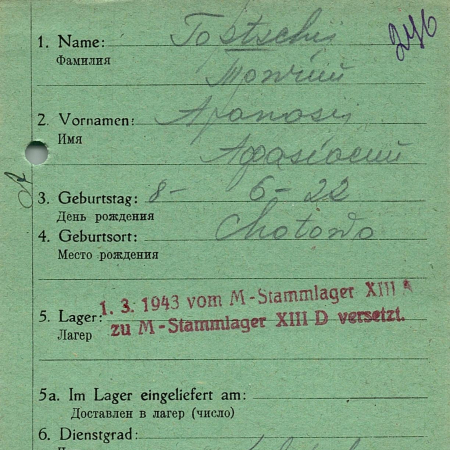 246
1. Name: Topstschij
Фамилия
2. Vornamen: Afanasij
Имя
Афанасий
3. Geburtstag: 8- 6- 22
День рождения
4. Geburtsort: Chotowo
Место рождения
1. 3. 1943 vom M-Stammlager XIII A
5. Lager: zu M-Stammlager XIII D versetzt.
Лагер
5a. Im Lager eingeliefert am:
Доставлен в лагер (число)
6. Dienstgrad: